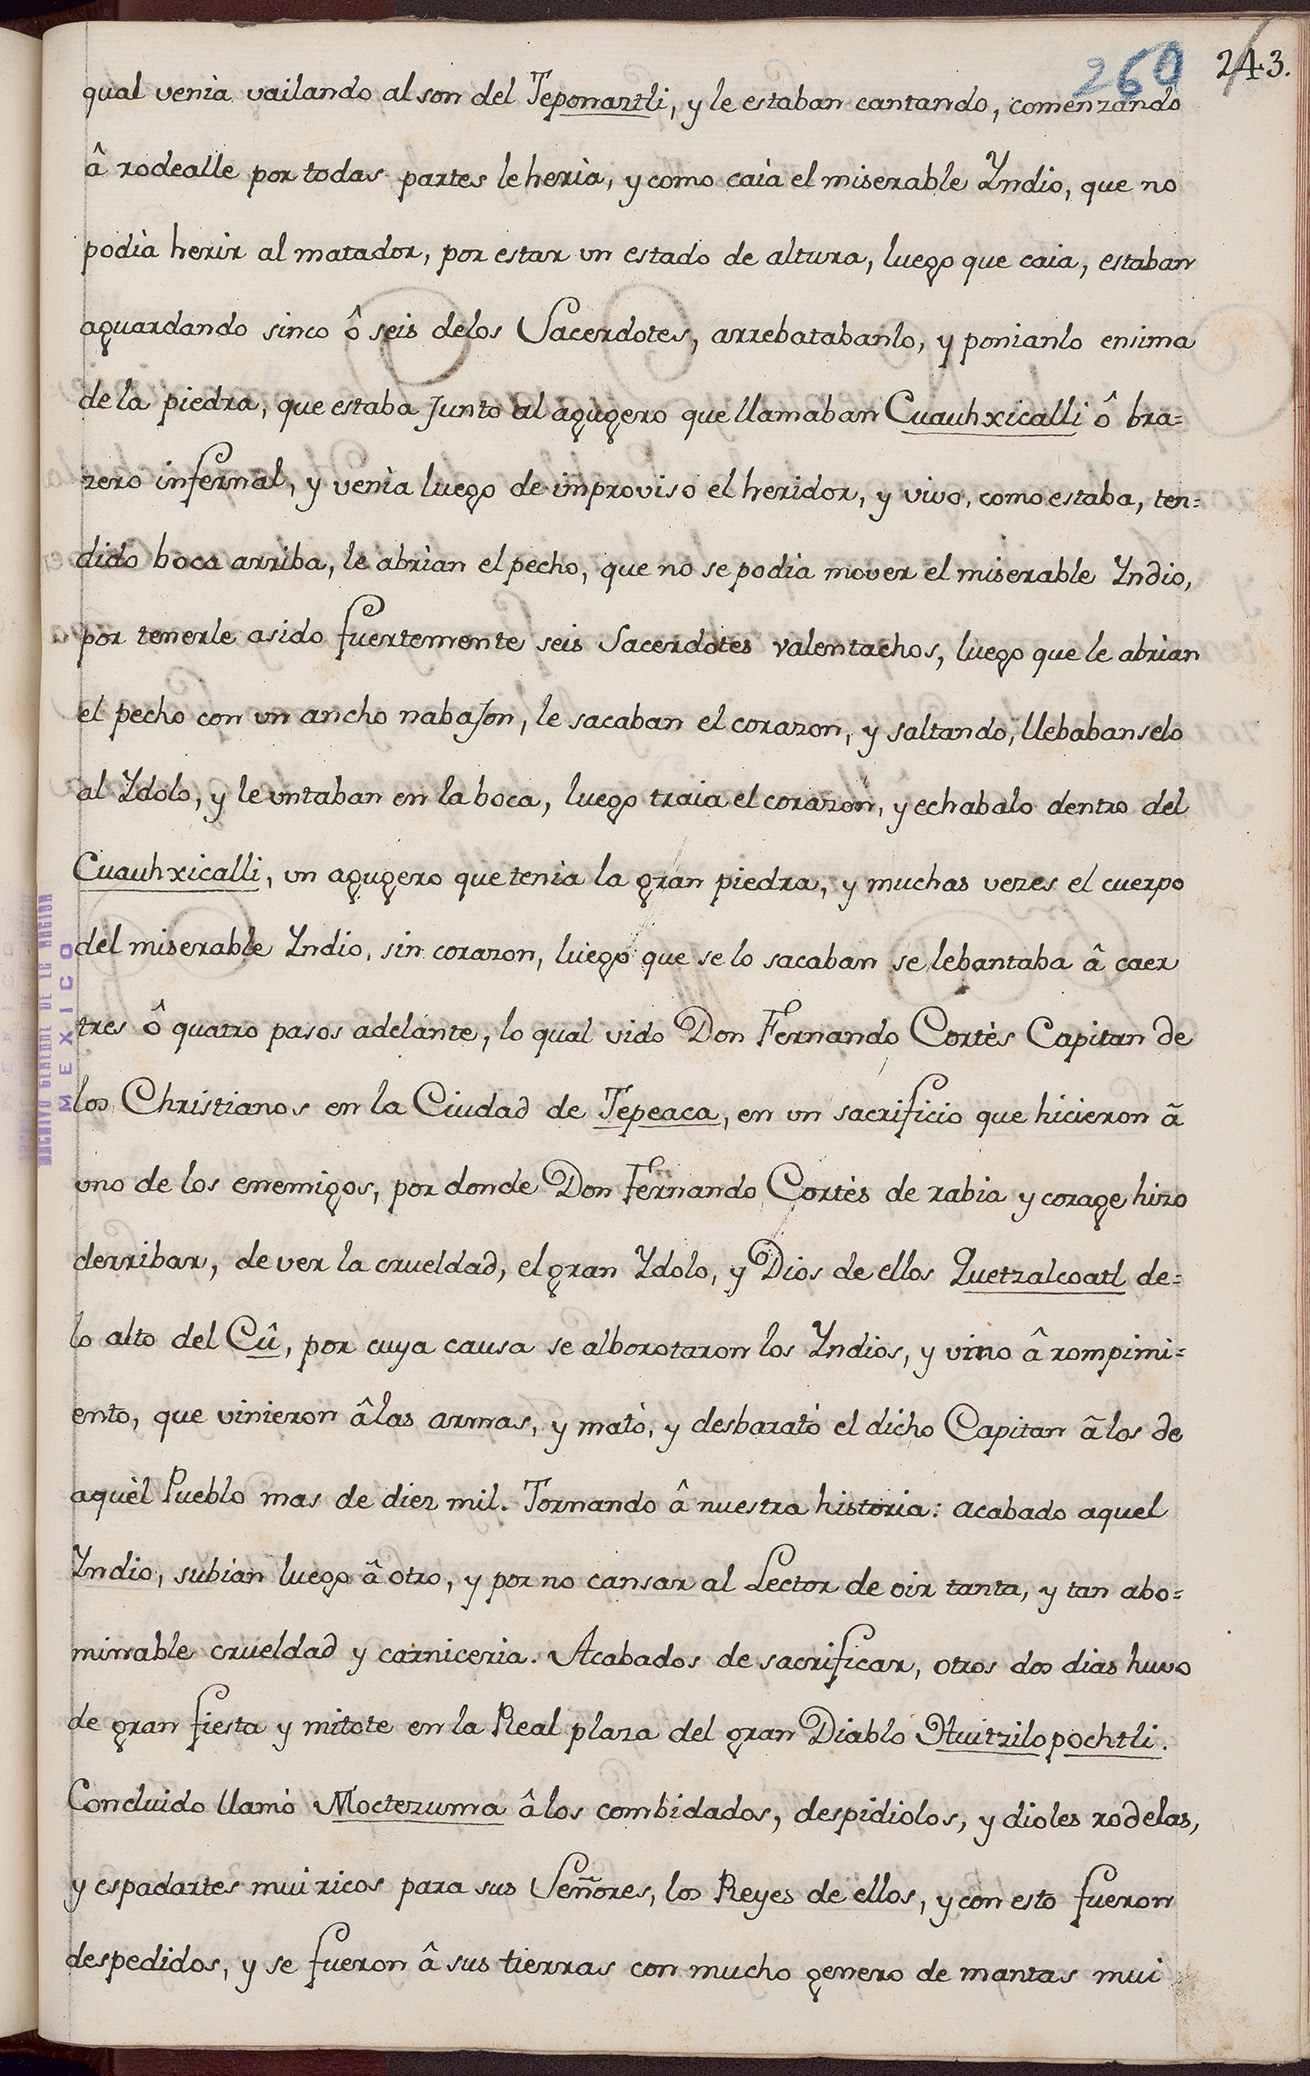 260 243.
qual venia vailando al son del Teponaztli, y le estaban cantando, comenzando
â rodealle por todas partes le heria, y como caìa el miserable Yndio, que no
podìa herir al matador, por estar un estado de altura, luego que caia, estaban
aguardando sinco ô seis delos Sacerdotes, arrebatabanlo, y ponianlo ensima
de la piedra, que estaba Junto al agugero que llamaban Cuauhxicalli ô bra=
zero infernal, y venìa luego de improviso el heridor, y vivo, como estaba, ten=
dido boca arriba, le abrìan el pecho, que no se podìa mover el miserable Yndio,
por tenerle asido fuertemente seis Sacerdotes valentachos, luego que le abrìan
el pecho con un ancho nabaJon, le sacaban el corazon, y saltando, llebabanselo
al Ydolo, y le untaban en la boca, luego traia el corazon, y echabalo dentro del
Cuauhxicalli, un agugero que tenìa la gran piedra, y muchas vezes el cuerpo
del miserable Yndio, sin corazon, luego que se lo sacaban se lebantaba â caer
tres ô quatro pasos adelante, lo qual vido Don Fernando Cortès Capitan de
los Christianos en la Ciudad de Tepeaca, en un sacrificio que hicieron ã
uno de los enemigos, por donde Don Fernando Cortès de rabia y corage hizo
derribar, de ver la crueldad, el gran Ydolo, y Dios de ellos Quetzalcoatl de=
lo alto del Cû, por cuya causa se alborotaron los Yndios, y vino â rompimi=
ento, que vinieron âlas armas, y matò, y desbaratò el dicho Capitan ãlos de
aquèl Pueblo mas de diez mil. Tornando â nuestra historia: acabado aquel
Yndio, subìan luego ã otro, y por no cansar al Lector de oir tanta, y tan abo=
minable crueldad y carniceria. Acabados de sacrificar, otros dos dias huvo
de gran fiesta y mitote en la Real plaza del gran Diablo Huitzilopochtli.
Concluido llamò Moctezuma âlos combidados, despidiolos, y dioles rodelas,
y espadartes mui ricos para sus Señores, los Reyes de ellos, y con esto fueron
despedidos, y se fueron â sus tierras con mucho genero de mantas mui
ARCHIVO GENERAL DE LA NACION
MEXICO